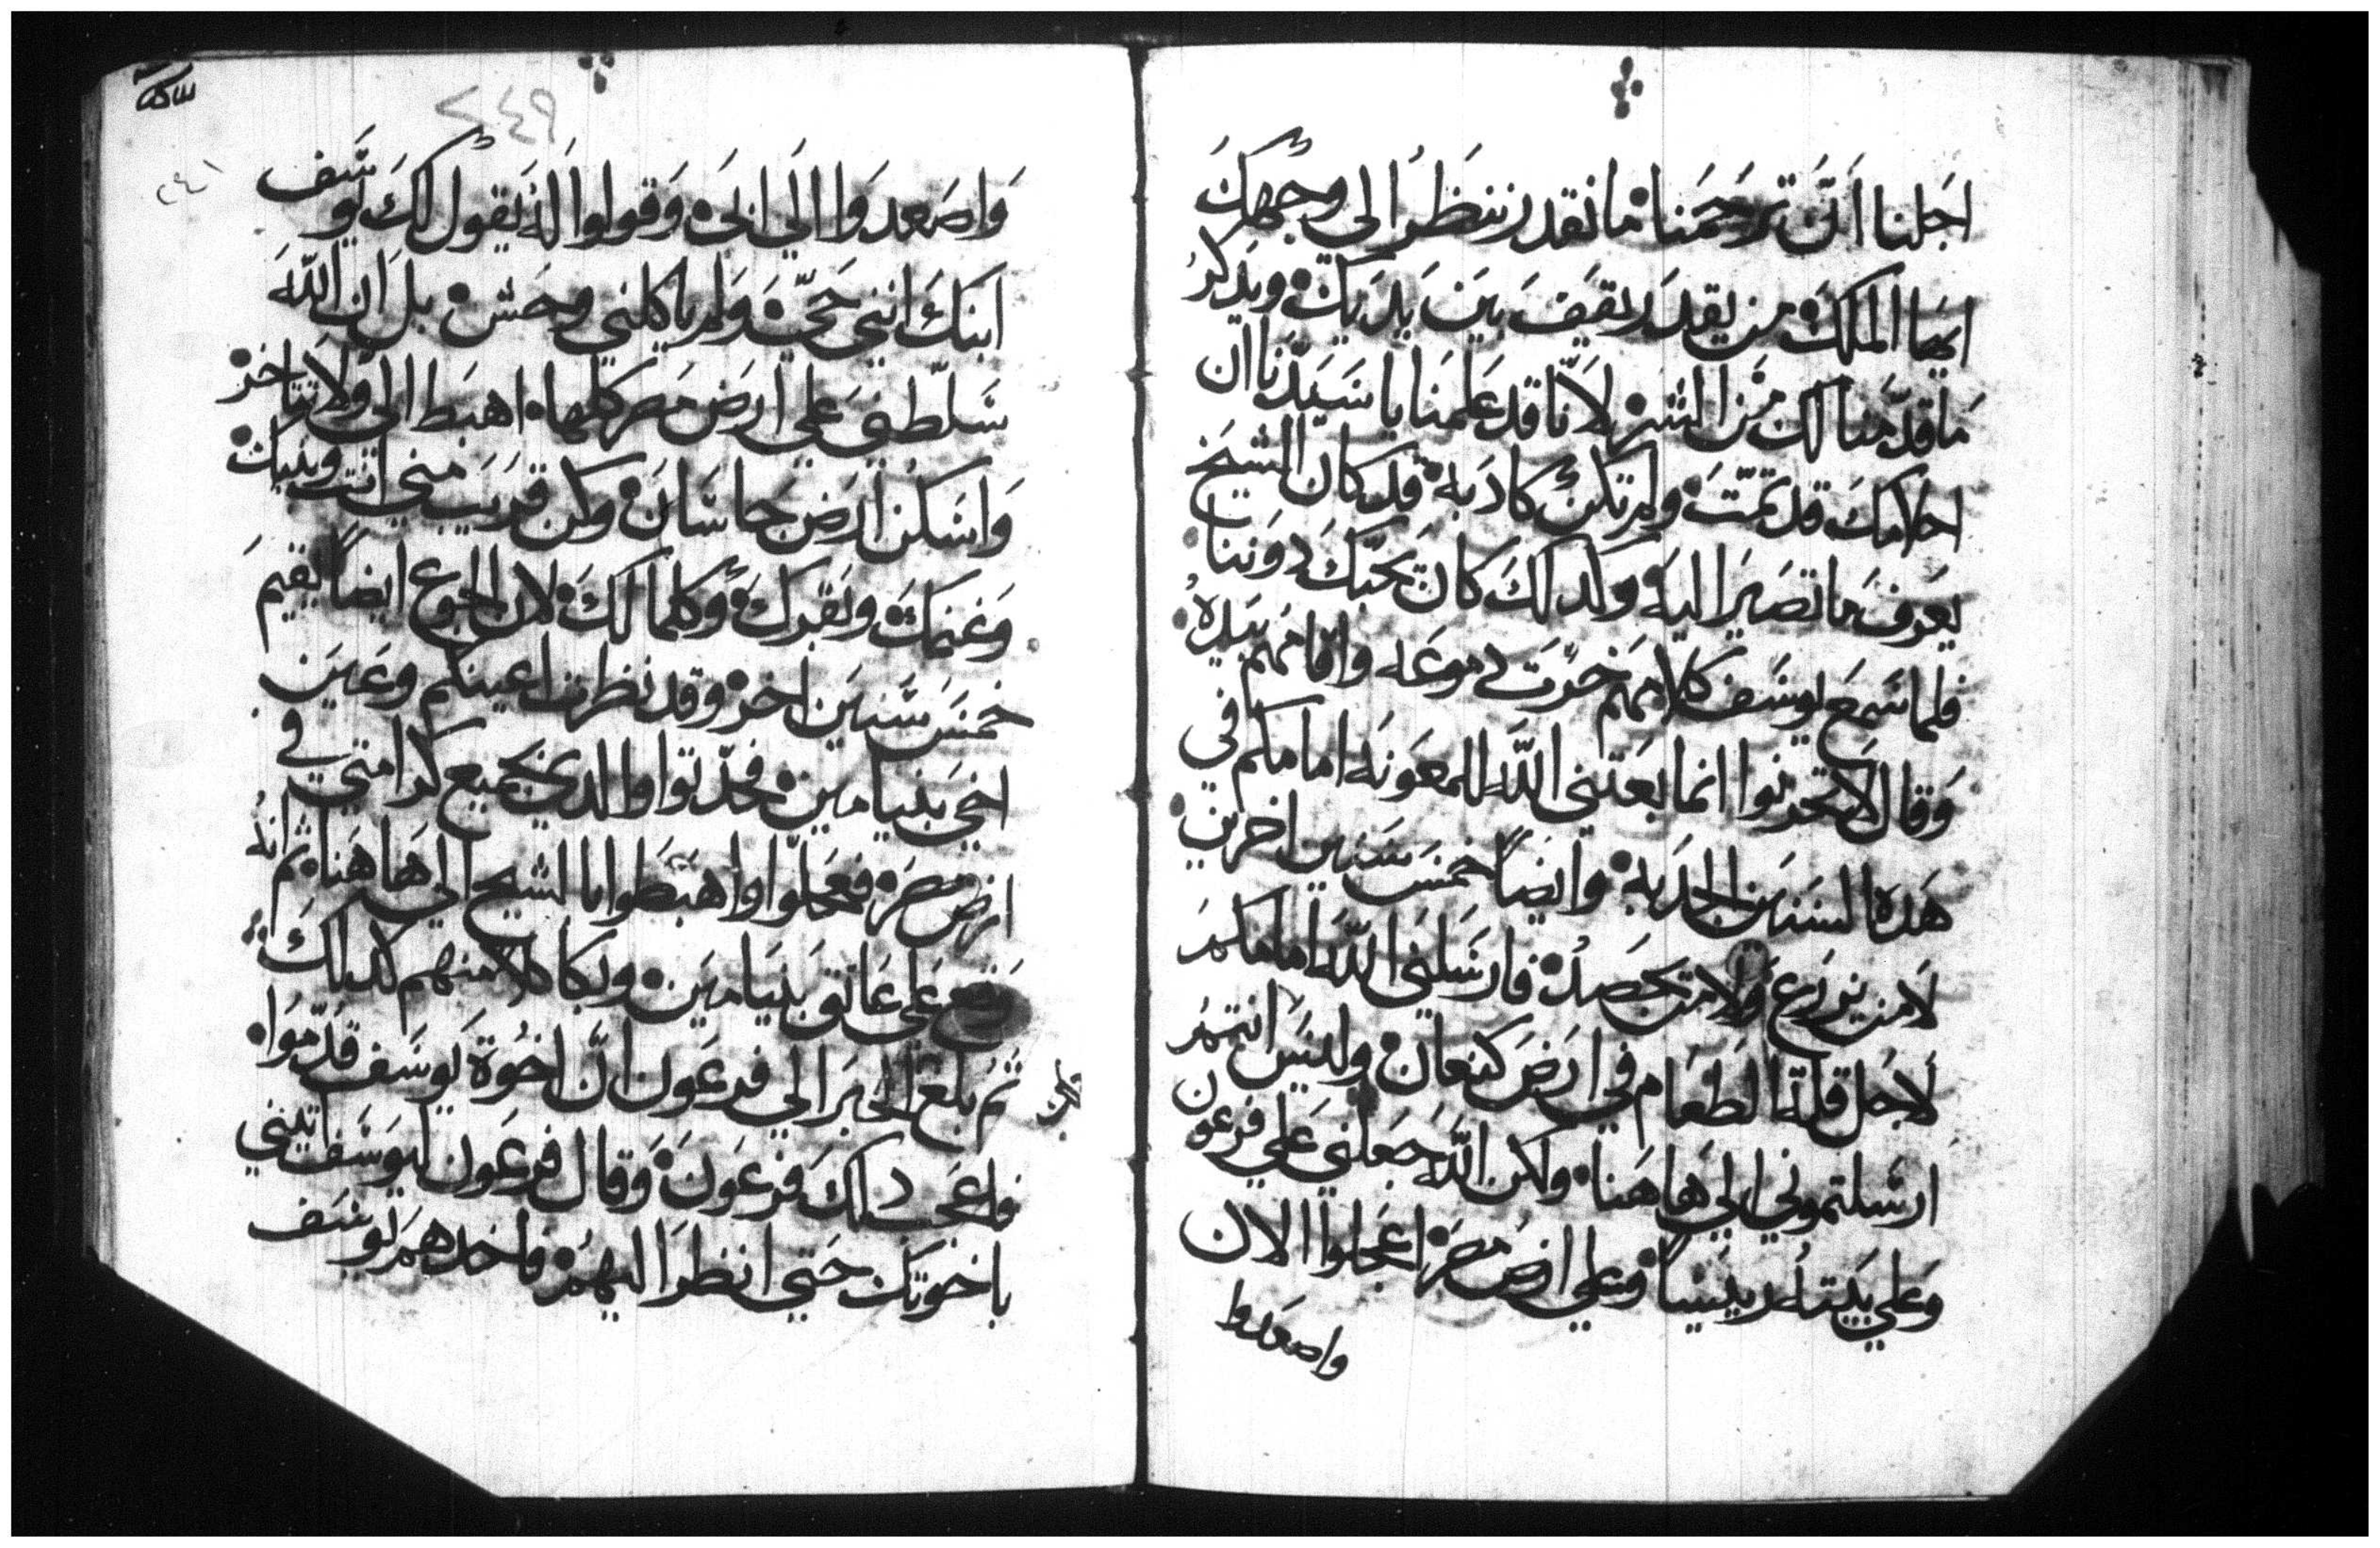 اجلنا ان ترحمنا ما نقدر ننظر الي وجهك
ايها الملك من يقدر يقف بين يديك ويذكر
ما قدمنا لك من الشر لانا قد علمنا يا سيدنا ان
احلامك قد تمت ولم تكن كادبه قد كان الشيخ
يعرف ما تصير اليه وكدلك كان يحبك دوننا
فلما سمع يوسف كلامهم خرت دموعه واقامهم بيده
وقال لا تحزنوا انما بعتني الله للمعونه امامكم في
هده السنين الجدبه وايضا خمس سنين اخرين
لا من يزرع ولا من يحصد فارسلني الله امامكم
لاجل قلة الطعام في ارض كنعان وليس انتم
ارسلتموني الي هاهنا ولكن الله جعلني علي فرعون
وعلي بيته رييسا وعلي ارض مصر اعجلوا الان
واصعدوا
٢٤٩
واصعدوا الي ابي وقولوا له يقول لك يوسف
ابنك انني حي ولم ياكلني وحش بل ان الله
سلطني علي ارض مصر كلها اهبط الي ولا تتاخر
واسكن ارض جاسان وكن قريب مني انت وبنيك
وغنمك وبقرك وكلما لك لان الجوع ايضا يقيم
خمس سنين اخر وقد نظرت اعينكم وعين
اخي بنيامين فحدتوا والدي بجميع كرامتي في
ارض مصر فعجلوا واهبطوا بالشيخ الي هاهنا ثم انه
وقع علي عاتق بنيامين وبكا كلا منهم كدلك
ثم بلغ الخبر الي فرعون ان اخوة يوسف قدموا
فاعجب دلك فرعون وقال فرعون ليوسف ايتيني
باخوتك حتي انظر اليهم فاخدهم يوسف